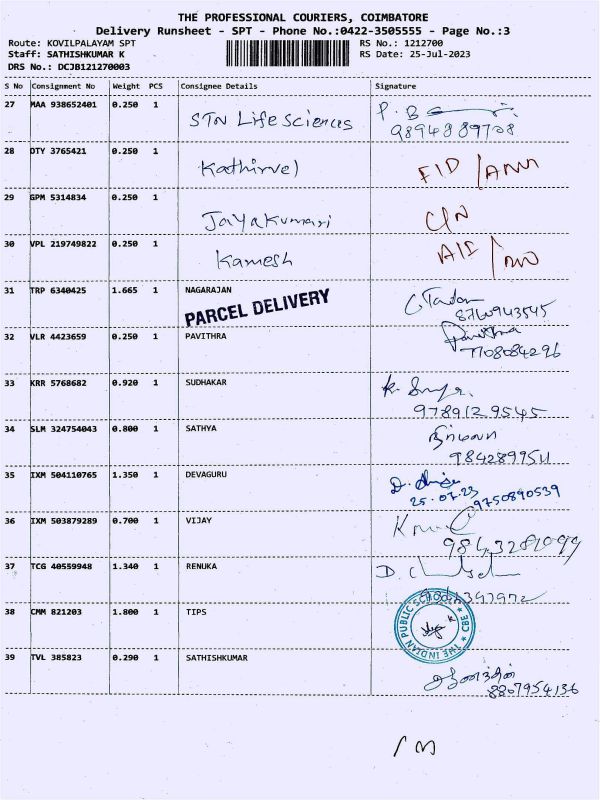 THE PROFESSIONAL COURIERS, COIMBATORE
Delivery Runsheet - SPT - Phone No.:0422-3505555 - Page No.:3
Route: KOVILPALAYAM SPT RS No.: 1212700
Staff: SATHISHKUMAR K RS Date: 25-Jul-2023
DRS No.: DCJB121270003
S No Consignment No Weight PCS Consignee Details Signature
27 MAA 938652401 0.250 1 STN Life Sciences
28 DTY 3765421 0.250 1 Kathirvel
29 GPM 5314834 0.250 1 Jayakumari
30 VPL 219749822 0.250 1 Kamesh
31 TRP 6340425 1.665 1 NAGARAJAN
PARCEL DELIVERY
8760943545
32 VLR 4423659 0.250 1 PAVITHRA Pavithra
7708084296
33 KRR 5768682 0.920 1 SUDHAKAR
9789129545
34 SLM 324754043 0.800 1 SATHYA
9842899511
35 IXM 504110765 1.350 1 DEVAGURU
25.07.23 9750890539
36 IXM 503879289 0.700 1 VIJAY
37 TCG 40559948 1.340 1 RENUKA
38 CMM 821203 1.800 1 TIPS
THE INDIAN PUBLIC SCHOOL CBE
39 TVL 385823 0.290 1 SATHISHKUMAR
8807954136